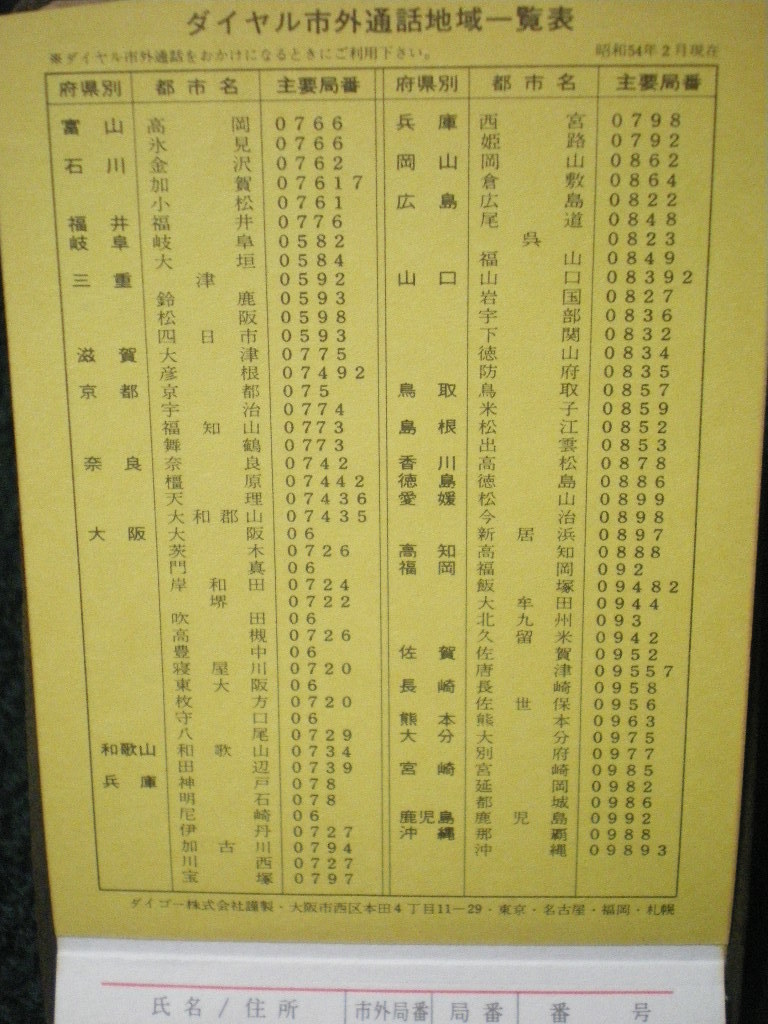 ダイヤル市外通話地域一覧表
※ダイヤル市外通話をおかけになるときにご利用下さい。 昭和54年2月現在
府県別 都市名 主要局番
富山 高岡 0766
氷見 0766
石川 金沢 0762
加賀 07617
小松 0761
福井 福井 0776
岐阜 岐阜 0582
大垣 0584
三重 津 0592
鈴鹿 0593
松阪 0598
四日市 0593
滋賀 大津 0775
彦根 07492
京都 京都 075
宇治 0774
福知山 0773
舞鶴 0773
奈良 奈良 0742
橿原 07442
天理 07436
大和郡山 07435
大阪 大阪 06
茨木 0726
門真 06
岸和田 0724
堺 0722
吹田 06
高槻 0726
豊中 06
寝屋川 0720
東大阪 06
枚方 0720
守口 06
八尾 0729
和歌山 和歌山 0734
田辺 0739
兵庫 神戸 078
明石 078
尼崎 06
伊丹 0727
加古川 0794
川西 0727
宝塚 0797
府県別 都市名 主要局番
兵庫 西宮 0798
姫路 0792
岡山 岡山 0862
倉敷 0864
広島 広島 0822
尾道 0848
呉 0823
福山 0849
山口 山口 08392
岩国 0827
宇部 0836
下関 0832
徳山 0834
防府 0835
鳥取 鳥取 0857
米子 0859
島根 松江 0852
出雲 0853
香川 高松 0878
徳島 徳島 0886
愛媛 松山 0899
今治 0898
新居浜 0897
高知 高知 0888
福岡 福岡 092
飯塚 09482
大牟田 0944
北九州 093
久留米 0942
佐賀 佐賀 0952
唐津 09557
長崎 長崎 0958
佐世保 0956
熊本 熊本 0963
大分 大分 0975
別府 0977
宮崎 宮崎 0985
延岡 0982
都城 0986
鹿児島 鹿児島 0992
沖縄 那覇 0988
沖縄 09893
ダイゴー株式会社謹製・大阪市西区本田4丁目11-29・東京・名古屋・福岡・札幌
氏名/住所 市外局番 局番 番号